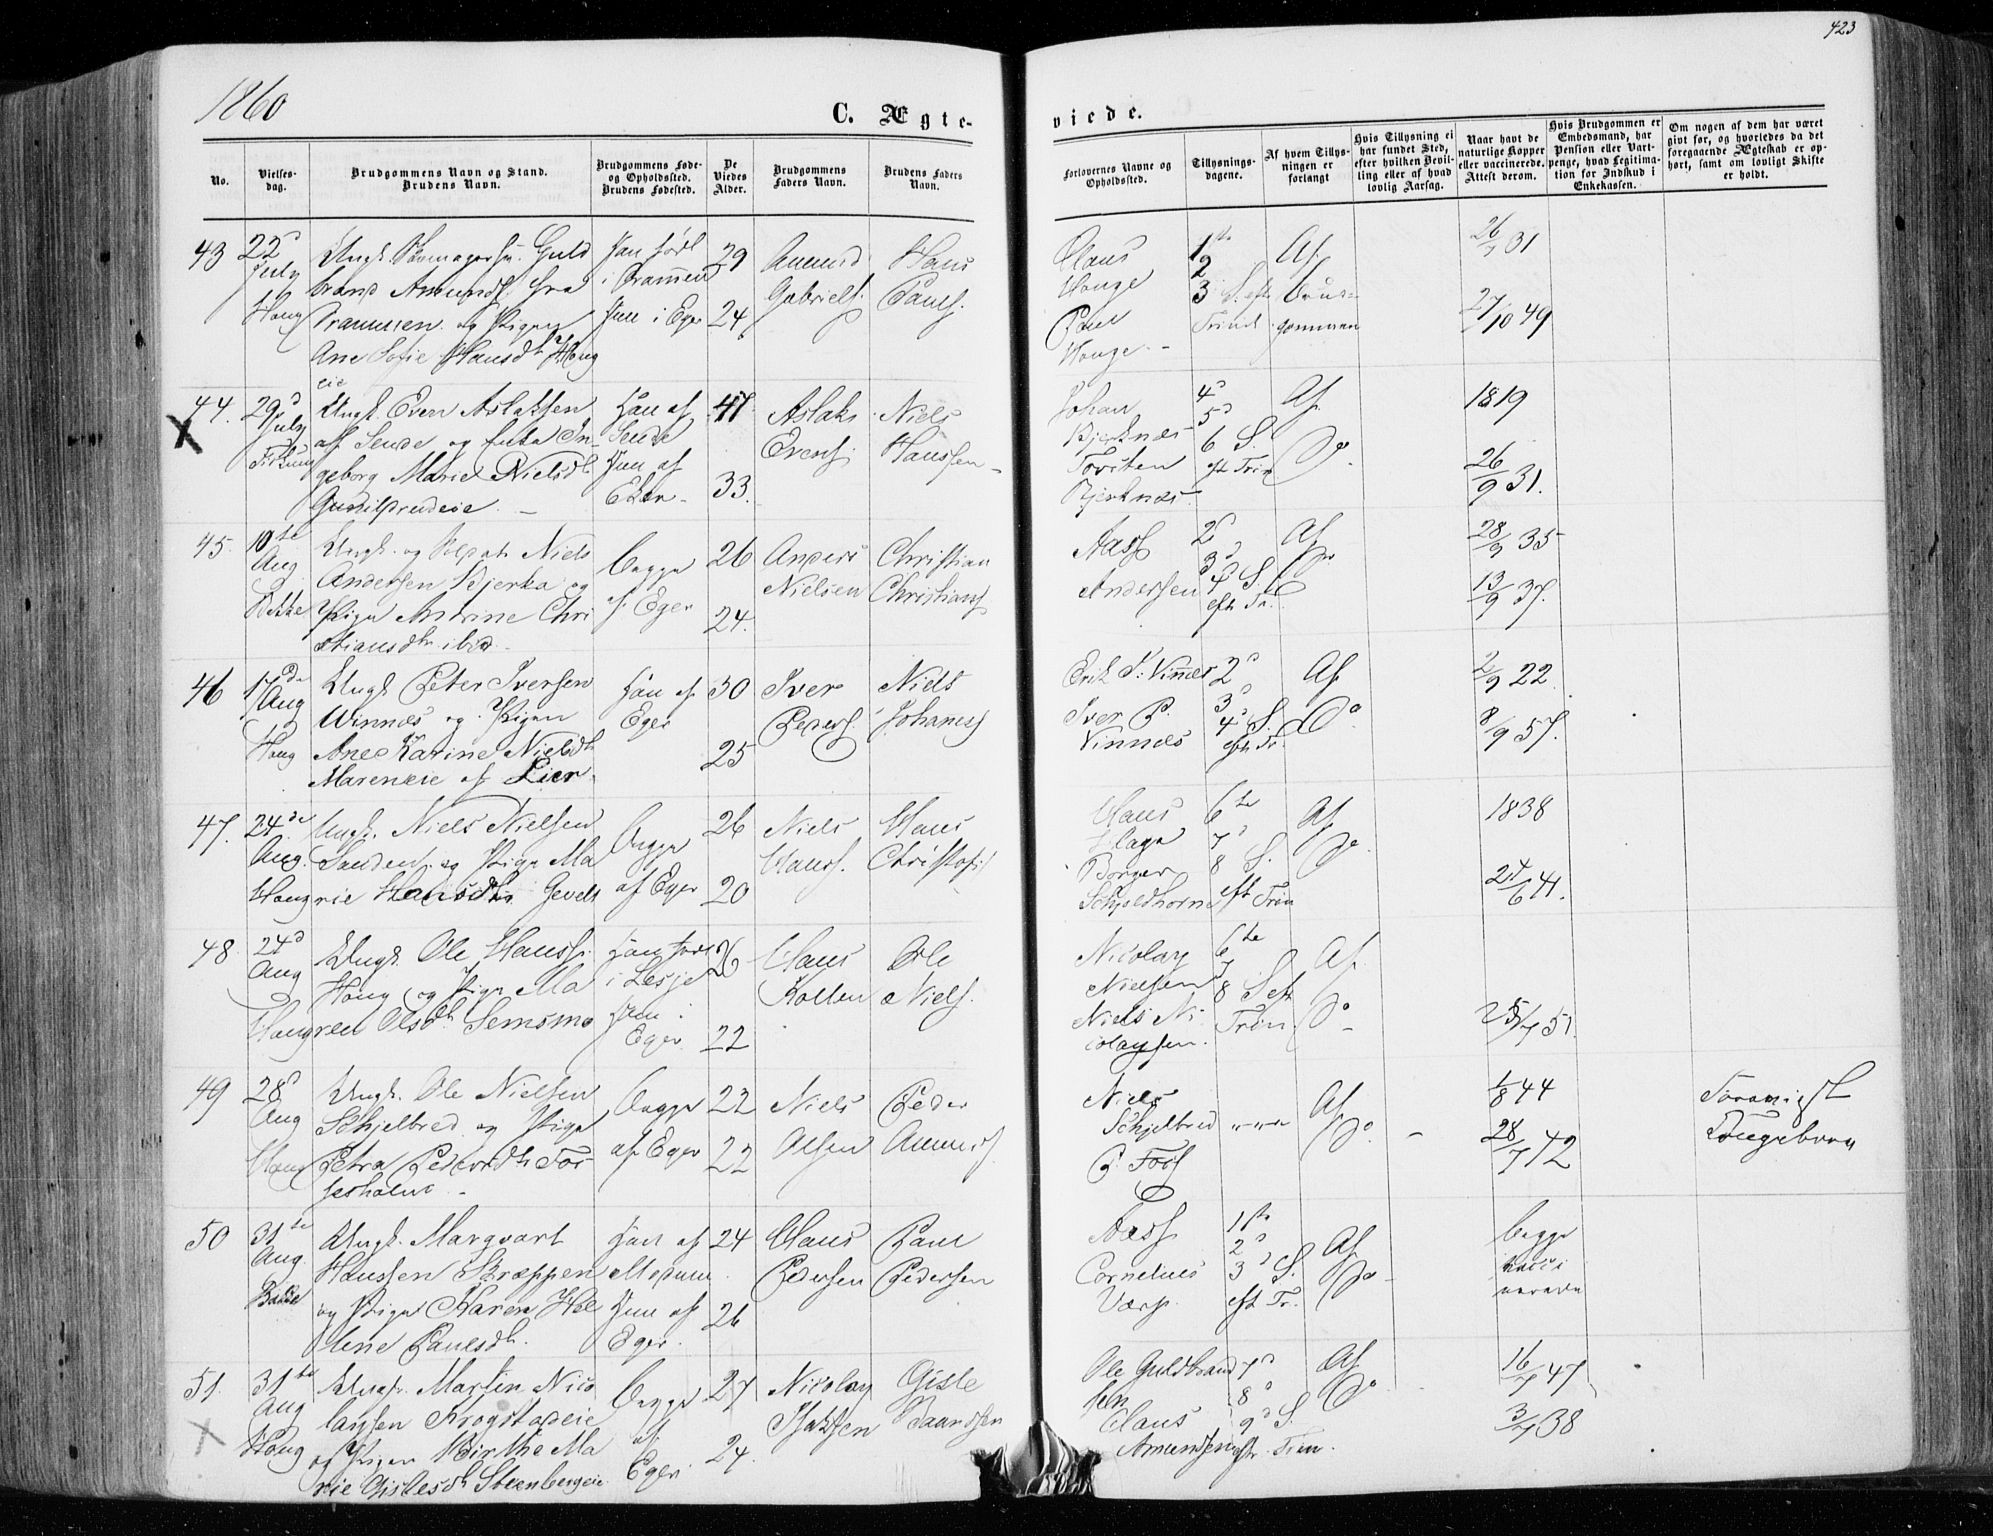 423
1860
C. Ægte-
viede.
No.
Vielses-
dag.
Brudgommens Navn og Stand.
Brudens Navn.
Brudgommens Føde-
og Opholdssted.
Brudens Fødested.
De
Viedes
Alder.
Brudgommens
Faders Navn.
Brudens Faders
Navn.
Forlovernes Navne og
Opholdssted.
Tillysnings-
dagene.
Af hvem Tillys-
ningen er
forlangt
Hvis Tillysning ei
har fundet Sted,
efter hvilken Bevil-
ling eller af hvad
lovlig Aarsag.
Naar havt de
naturlige Kopper
eller vaccinerede.
Attest derom.
Hvis Brudgommen er
Embedsmand, har
Pension eller Vart-
penge, hvad Legitima-
tion for Indskud i
Enkekassen.
Om nogen af dem har været
gift før, og hvorledes da det
foregaaende Ægteskab er op-
hørt, samt om lovligt Skifte
er holdt.
43
22d
July
Houg
Ungk. Guld
brand Amunds. fra
Drammen og Pigen
Ane Sofie Hansdtr Houg
eie
Han født
i Drammen
Hun i Eger
29
24
Amund
Gabriels.
Hans
Pauls.
Claus
Houge
Paul
Houge
1ste
2
3 S. eft
Trinit
Af
Brud-
gommen
26/7 31
27/10 49
44.
29d
July
Fiskum
Ungk. Even Aslaksen
af Sende og Enke In-
geborg Marie Nielsdtr
Han af
Sende
Hun af
Eker
47
33.
Aslak
Evens.
Niels
Hanssen
Johan
Bjerknæs
Torsten
Bjerknæs
4d
5d
6 S.
eft Trin
Af
Do.
1819
26/9 31.
45.
10de
Aug
Bakke
Ungk. og Niels
Andersen Bjerka og
Pigen Andrine Chri
stiansdtr ibid.
Begge
af Eger
26
24.
Anders
Nielsen
Christian
Christians
Aass
Andersen
2d
3d
4d S.
eft Tr.
Af
Do
28/9 35
13/9 37.
46
17de
Aug
Houg
Ungk. Peter Iversen
Winnæs og Pigen
Anne Karine Nielsdtr
Mareneie af Lier.
Han af
Eger
30
25
Iver
Peders
Niels
Johannes
Erik P. Vinnæs
Iver P.
Vinnæs
2d
3d
4d S.
eft Tr.
Af
Do
2/9 22
8/9 57.
47.
24de
Aug.
Houg
Ungk. Niels Nielsen
Sanden og Pigen Ma
rie Hansdtr Gevelt
Begge
af Eger
26
20
Niels
Hanss.
Hans
Christofs
Hans
Hage
Borger
Schjoldhorne
6te
7d
8 S.
eft Trin
Af
Do
1838
24/6 41.
48.
24d
Aug
Houg
Ungk. Ole Hanss.
Houg og Pigen Ma
ren Olsdtr Semsmo
Han født
i Lesje
Hun i
Eger
26
22
Hans
Kolten
Ole
Niels.
Nicolay
Nielsen
Niels Ni-
colaysen.
6te
7
8 S eft
Trin
Af
Do
25/7 51
49
28d
Aug
Houg
Ungk. Ole Nielsen
Schjelbred og Pigen
Petra Pedersdtr Fos-
sesholm
Begge
af Eger
22
22
Niels
Olsen
Peder
Amunds
Niels
Schjelbred
P. Foss
Af
Do.
1/8 44
28/7 42
50
31te
Aug.
Bakke
Ungk. Marqvart
Hanssen Skreppen
og Pigen Karen He
lene Paulsdtr.
Han af
Modum
Hun af
Eger.
24
26
Hans
Pedersen
Paul
Pedersen
Aass
Cornelius
Værp.
1ste
2d
3d S.
eft Tr.
Af
Do
begge
vacci
nerede
51.
31te
Aug
Houg
Ungk. Martin Nico
laysen Krogstadeie
og Pigen Birthe Ma
rie Gislesdtr Steenbergeie
Begge
af
Eger.
27
24.
Nicolay
Isaksen
Gisle
Baardsen
Ole Guldbrand
sen
Claus
Amundsen
7d
8d
9d S.
eftr. Trin.
Af
Do
16/7 47
3/7 38